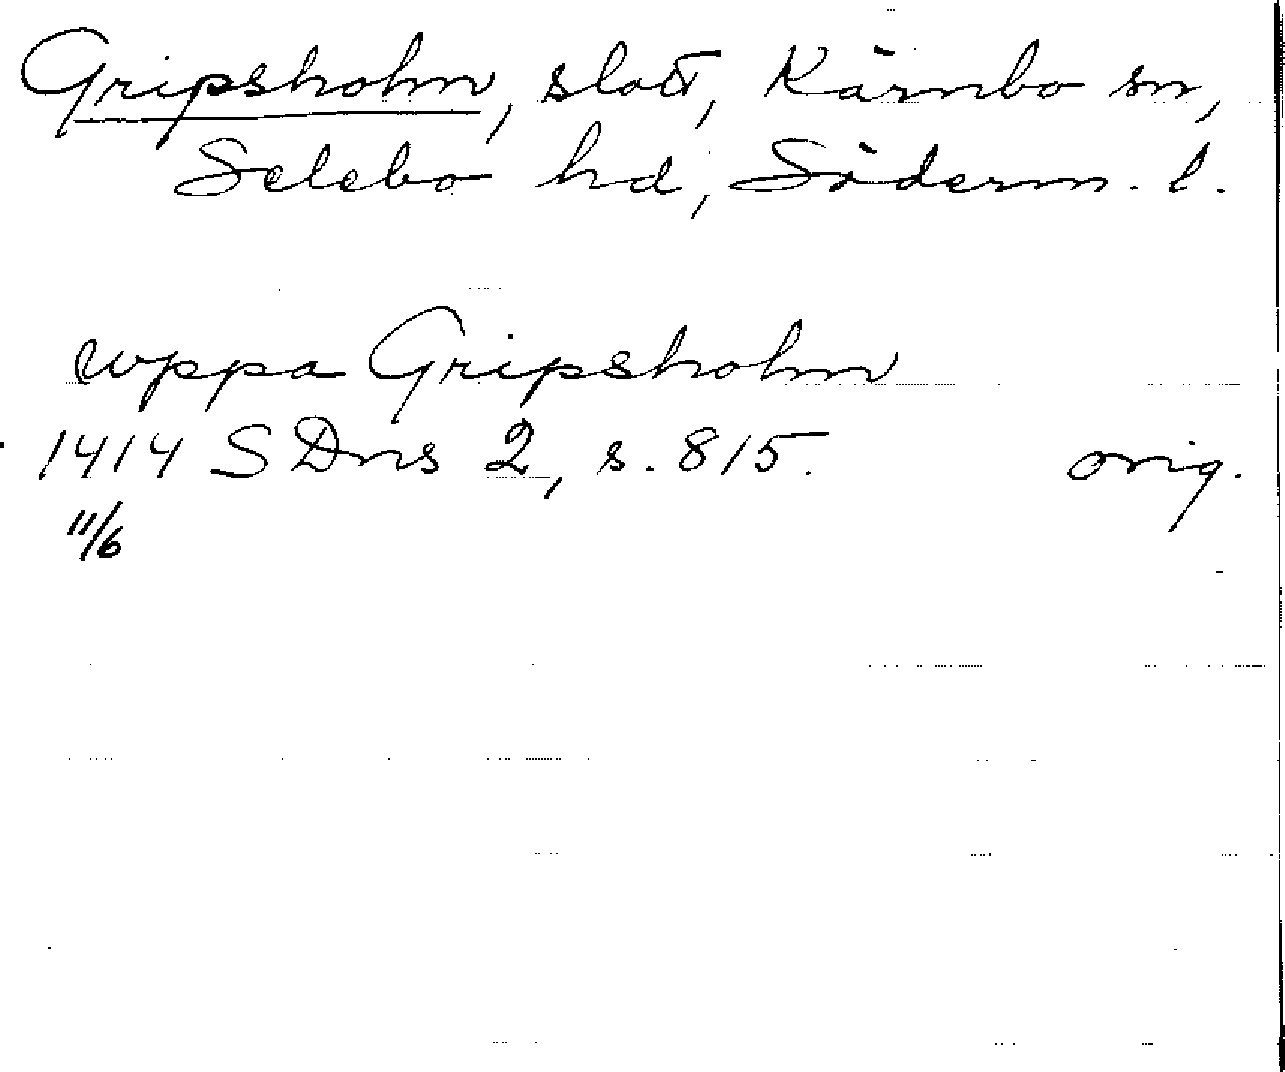 Gripsholm, slott, Kärnbo sn,
Selebo hd, Söderm. l.
wppa Gripsholm
1414 SDns 2, s. 815. orig.
11/6